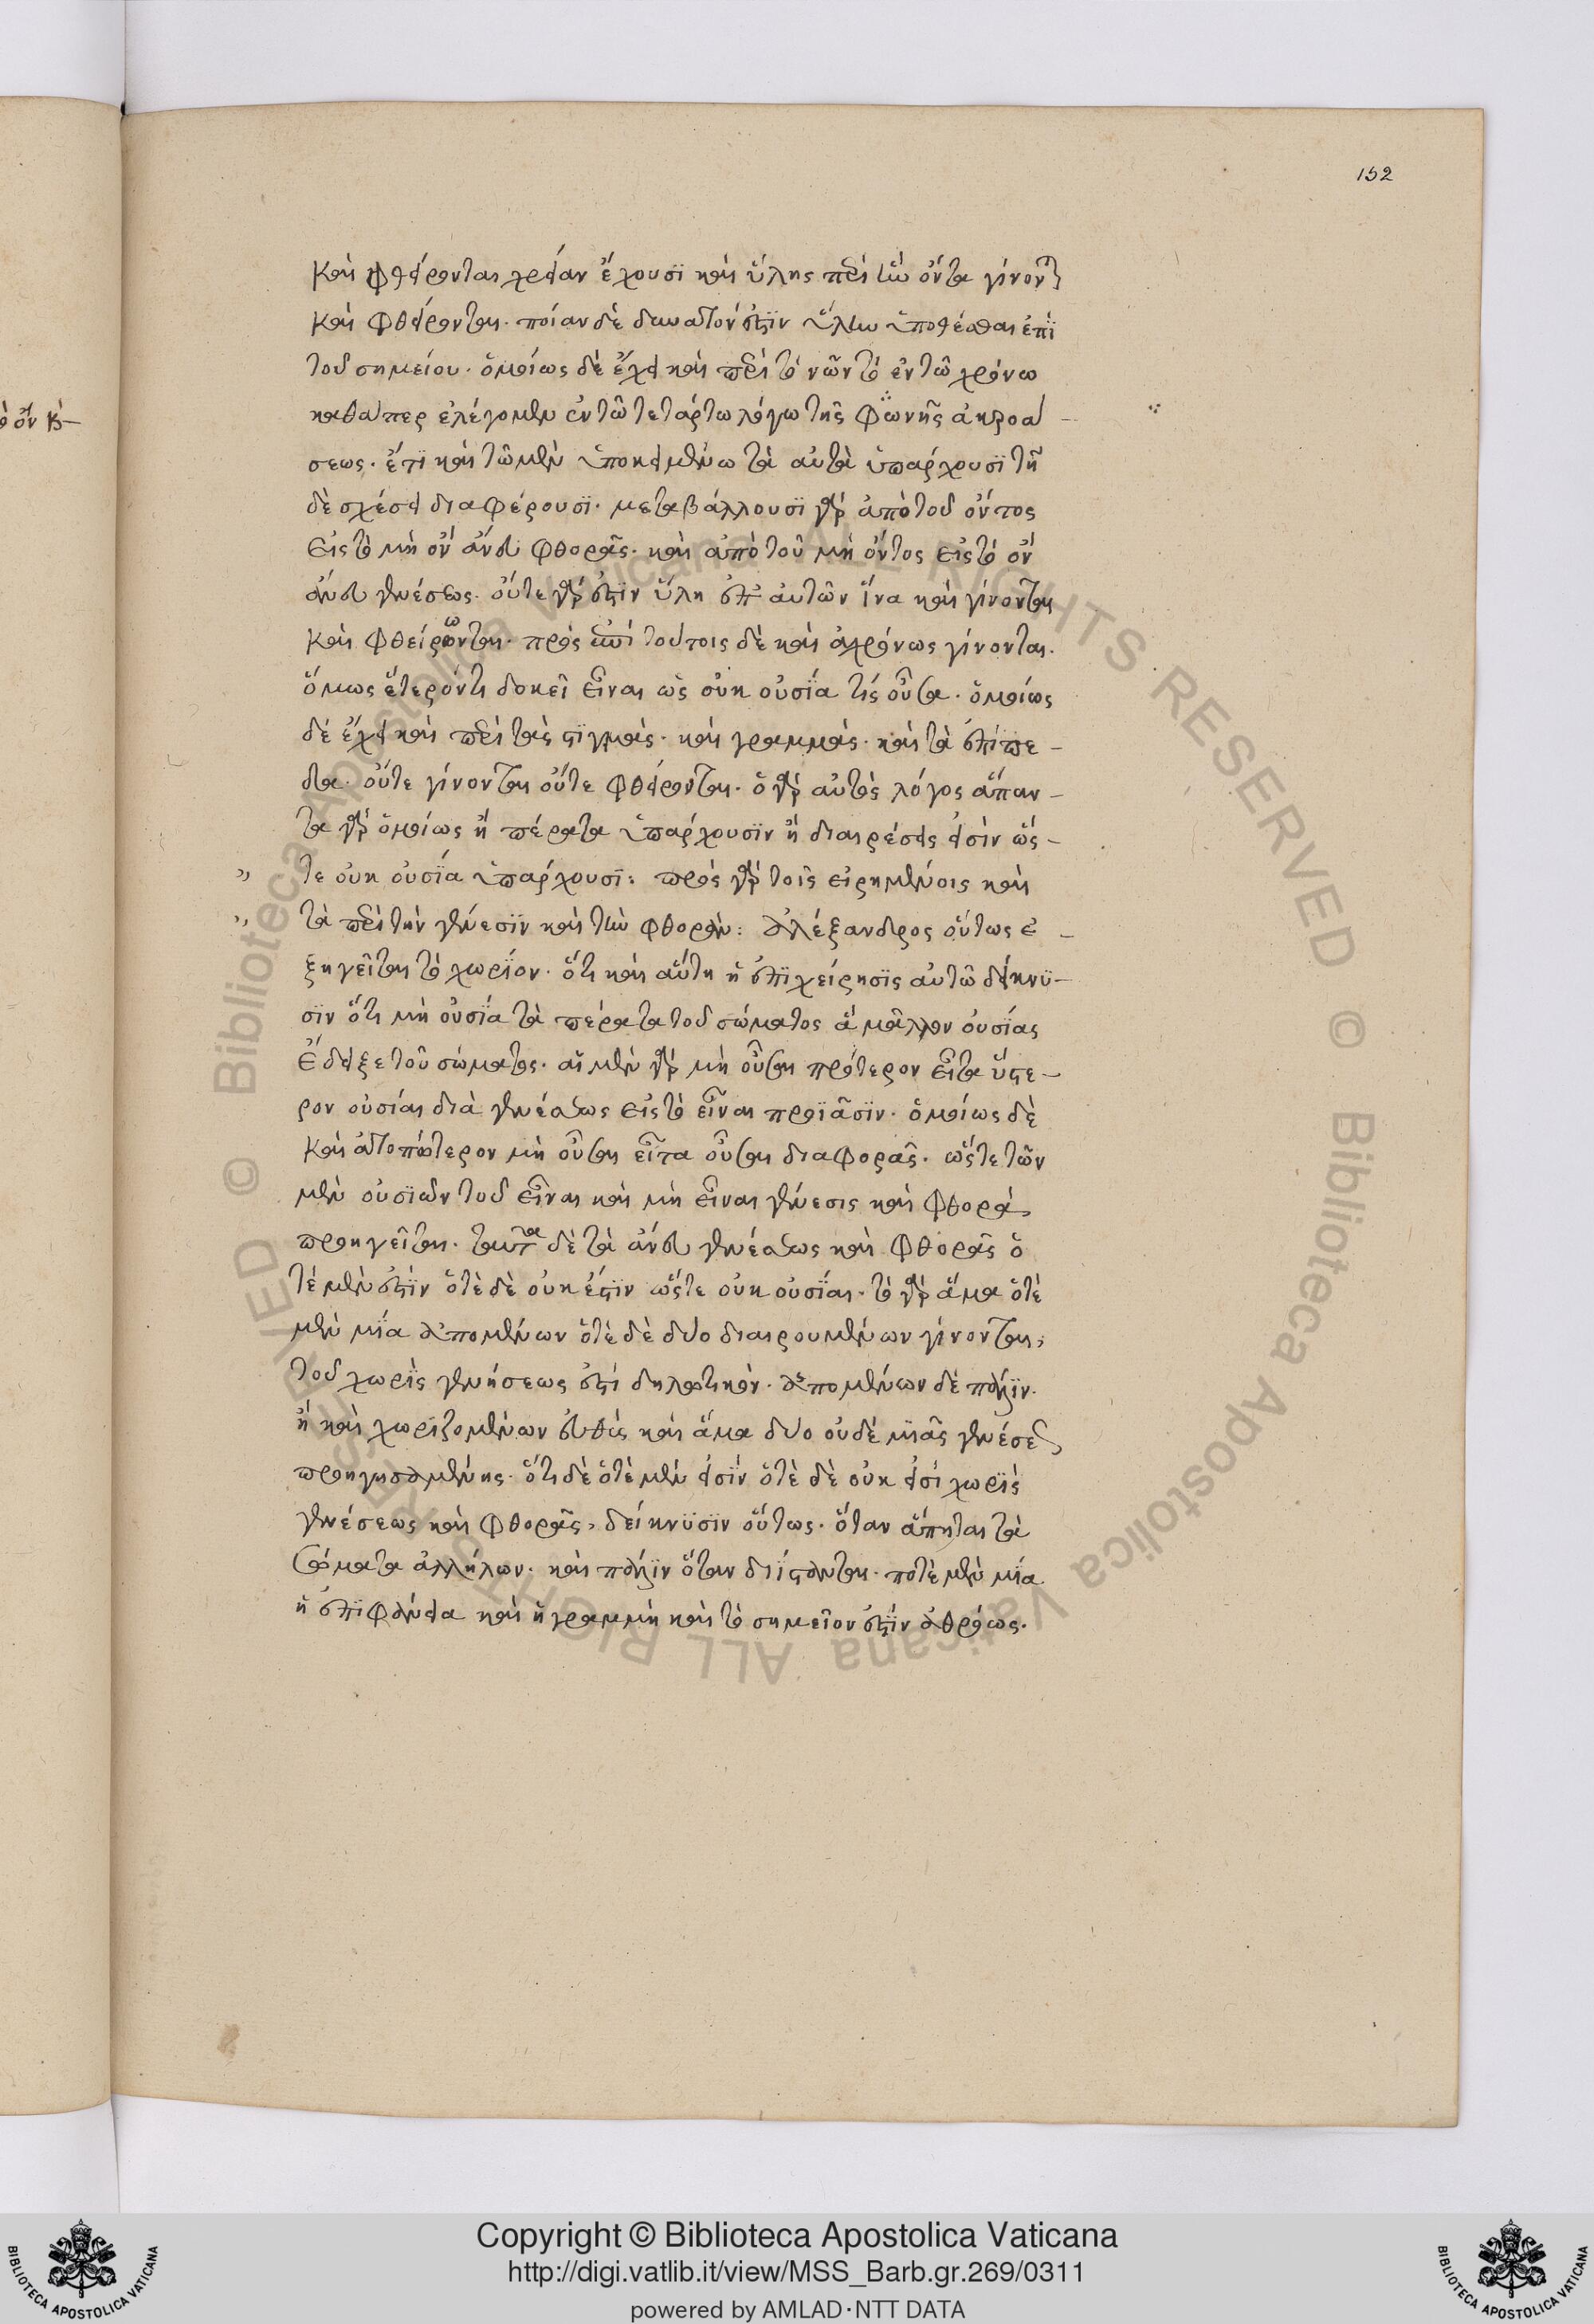 152
καὶ φθείρονται χρείαν ἔχουσϊ καὶ ὕλης περὶ ἣν ὄντα γίνονται
καὶ φθείρονται. ποίαν δὲ δυνατόν ἐστϊν ὕλην ὑποθέσθαι ἐπῒ
τοῦ σημείου. ὁμοίως δὲ ἔχει καὶ περὶ τὸ νῦν τὸ ἐν τῶ χρόνω
καθάπερ ἐλέγομεν ἐν τῶ τετάρτω λόγω τῆς φωνῆς ἀκροά-
σεως. ἔτϊ καὶ τῶ μὲν ὑποκειμένω τὰ αὐτὰ ὑπάρχουσϊ τῆ
δὲ σχέσει διαφέρουσϊ. μεταβάλλουσϊ γὰρ ἀπὸ τοῦ ὄντος
εἰς τὸ μὴ ὂν ἄνευ φθορᾶς. καὶ ἀπὸ τοῦ μὴ ὄντος εἰς τὸ ὂν
ἄνευ γενέσεως. οὔτε γάρ ἐστϊν ὕλη ἐπ' αὐτῶν ἵνα καὶ γίνονται
καὶ φθείρωνται. πρὸς ἐπὶ τούτοις δὲ καὶ ἀχρόνως γίνονται.
ὅμως ἕτερόν τι δοκεῖ εἶναι ὡς οὐκ οὐσΐα τίς οὖσα. ὁμοίως
δὲ ἔχει καὶ περὶ τὰς στϊγμάς. καὶ γραμμάς. καὶ τὰ ἐπίπε-
δα. οὔτε γίνονται οὔτε φθείρονται. ὁ γὰρ αὐτὸς λόγος ἅπαν-
τα γὰρ ὁμοίως ἢ πέρατα ὑπάρχουσϊν ἢ διαιρέσεις εἰσὶν ὥς-
τε οὐκ οὐσΐα ὑπάρχουσϊ: πρὸς γὰρ τοῖς εἰρημένοις καὶ
τὰ περὶ τὴν γένεσϊν καὶ τὴν φθοράν: ἀλέξανδρος οὕτως ἐ-
ξηγεῖται τὸ χωρΐον. ὅτι καὶ αὕτη ἡ ἐπϊχείρησϊς αὐτῶ δείκνϋ-
σϊν ὅτι μὴ οὐσΐα τὰ πέρατα τοῦ σώματος ἃ μᾶλλον οὐσίας
ἔδειξε τοῦ σώματος. αἱ μὲν γὰρ μὴ οὖσαι πρότερον εἶτα ὕστε-
ρον οὐσίαι διὰ γενέσεως εἰς τὸ εἶναι προϊᾶσϊν. ὁμοίως δὲ
καὶ ἀτοπώτερον μὴ οὖσαι εἶτα οὖσαι διαφορᾶς. ὥστε τῶν
μὲν οὐσϊῶν τοῦ εἶναι καὶ μὴ εἶναι γένεσις καὶ φθορὰ
προηγεῖται. ταῦτα δὲ τὰ ἄνευ γενέσεως καὶ φθορᾶς ὁ
τὲ μὲν ἐστΐν ὁτὲ δὲ οὐκ ἔστϊν ὥστε οὐκ οὐσΐαι. τὸ γὰρ ἅμα ὁτὲ
μὲν μΐα ἁπτομένων ὁτὲ δὲ δύο διαιρουμένων γίνονται,
τοῦ χωρῒς γενήσεως ἐστὶ δηλωτικόν. ἁπτομένων δὲ πάλϊν.
ἢ καὶ χωρϊζομένων εὐθὺς καὶ ἅμα δύο οὐδὲ μϊᾶς γενέσεως
προηγησαμένης. ὅτι δὲ ὁτὲ μὲν εἰσΐν ὁτὲ δὲ οὐκ εἰσὶ χωρῒς
γενέσεως καὶ φθορᾶς, δείκνϋσϊν οὕτως. ὅταν ἅπτηται τὰ
σώματα ἀλλήλων. καὶ πάλϊν ὅταν διΐστανται. ποτὲ μὲν μΐα
ἡ ἐπϊφάνεια καὶ ἡ γραμμὴ καὶ τὸ σημεῖον ἐστΐν ἀθρόως.
Copyright © Biblioteca Apostolica Vaticana
http://digi.vatlib.it/view/MSS_Barb.gr.269/0311
powered by AMLAD·NTT DATA